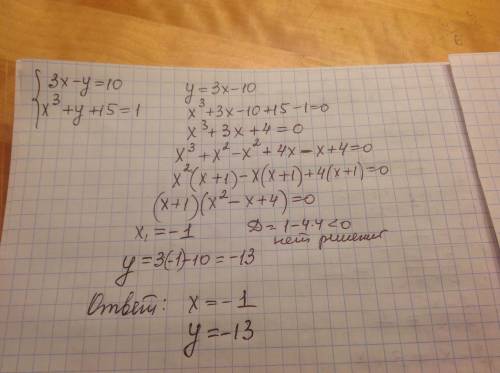 3x-y=10
x³+y+15=1
y=3x-10
x³+3x-10+15-1=0
x³+3x+4=0
x³+x²-x²+4x-x+4=0
x²(x+1)-x(x+1)+4(x+1)=0
(x+1)(x²-x+4)=0
x₁=-1
D=1-4·4<0
нет решений
y=3(-1)-10=-13
Ответ: x=-1
y=-13